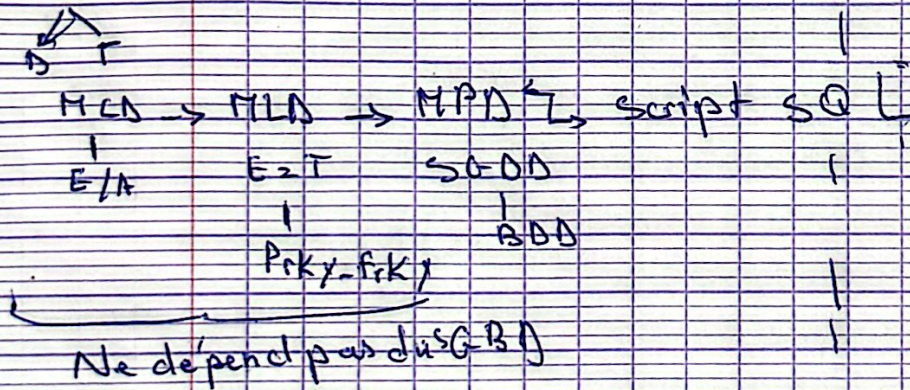 D T
MCD → MLD → MPD ↳ script SQL
E/A E=T SGDD
BDD
PrKy_frKy
Ne dépend pas du SGBD